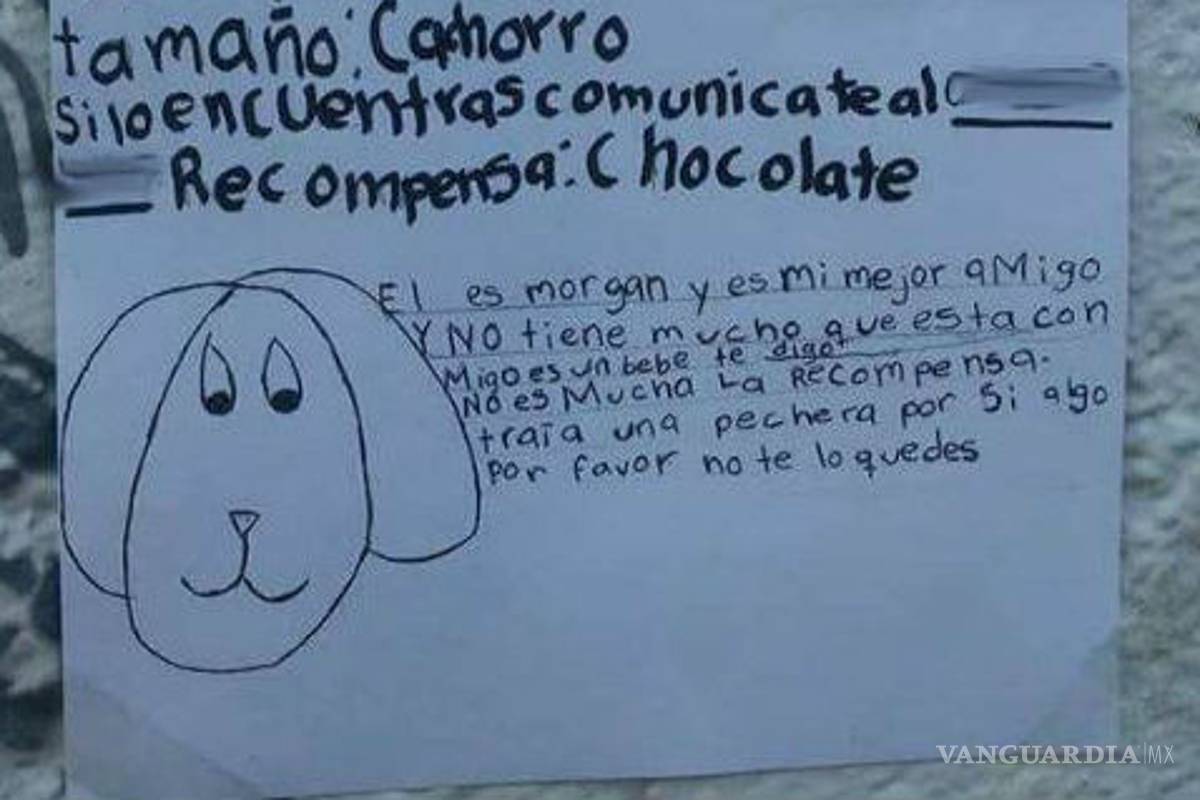 tamaño: Cachorro
Si lo encuentras comunicate al
Recompensa: Chocolate
El es morgan y es mi mejor aMigo
Y NO tiene mucho que esta con
Migo es un bebe te digo
NO es Mucha La Recompensa.
traia una pechera por Si algo
por favor no te lo quedes
VANGUARDIA|MX